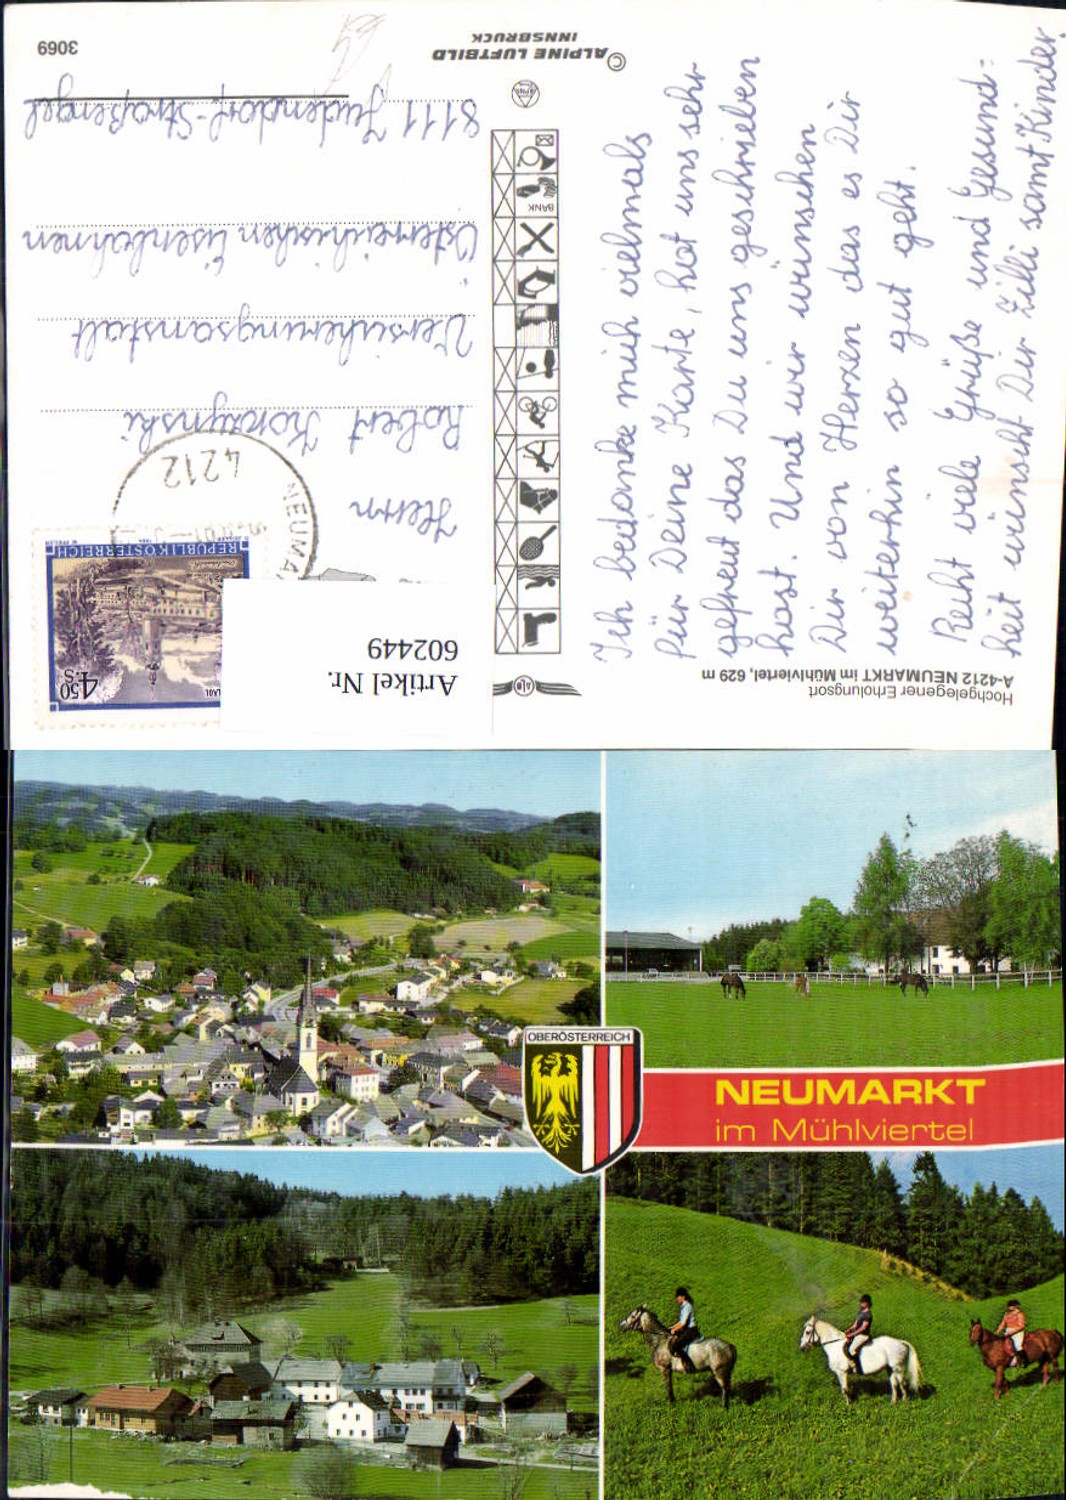 Hochgelegener Erholungsort
A-4212 NEUMARKT im Mühlviertel, 629 m
Ich bedanke mich vielmals
für Deine Karte, hat uns sehr
gefreut das Du uns geschrieben
hast. Und wir wünschen
Dir von Herzen das es Dir
weiterhin so gut geht.
Recht viele Grüße und Gesund-
heit wünscht Dir Zilli samt Kinder
BANK
© ALPINE LUFTBILD
INNSBRUCK
Artikel Nr.
602449
4.50
S
REPUBLIK ÖSTERREICH
NEUMA
4212
Herrn
Robert
Versicherungsanstalt
Österreichischen Eisenbahnen
8111 Judendorf-Straßengel
3069
OBERÖSTERREICH
NEUMARKT
im Mühlviertel